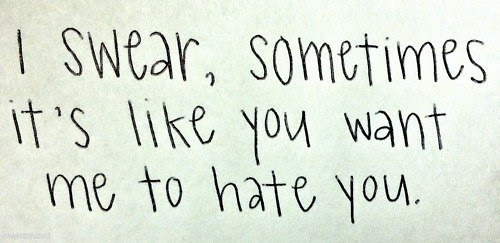 I swear, sometimes
it's like you want
me to hate you.